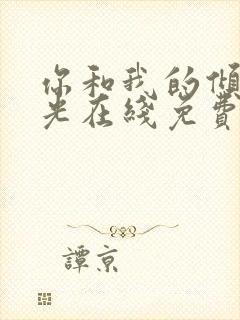 你和我的傾
光在綫免費
譚京